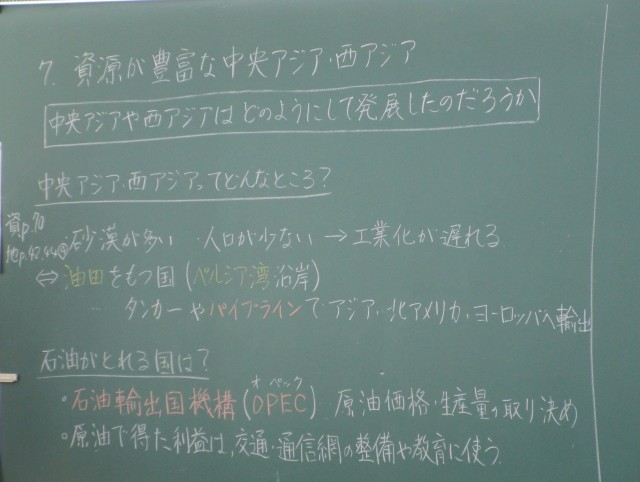 7. 資源が豊富な中央アジア・西アジア
中央アジアや西アジアはどのようにして発展したのだろうか
中央アジア・西アジアってどんなところ?
資p.70
地p.42.44④
砂漠が多い 人口が少ない → 工業化が遅れる
⇔ 油田をもつ国 (ペルシア湾沿岸)
タンカーやパイプラインでアジア・北アメリカ・ヨーロッパへ輸出
石油がとれる国は?
オペック
・石油輸出国機構(OPEC) 原油価格・生産量の取り決め
・原油で得た利益は、交通・通信網の整備や教育に使う